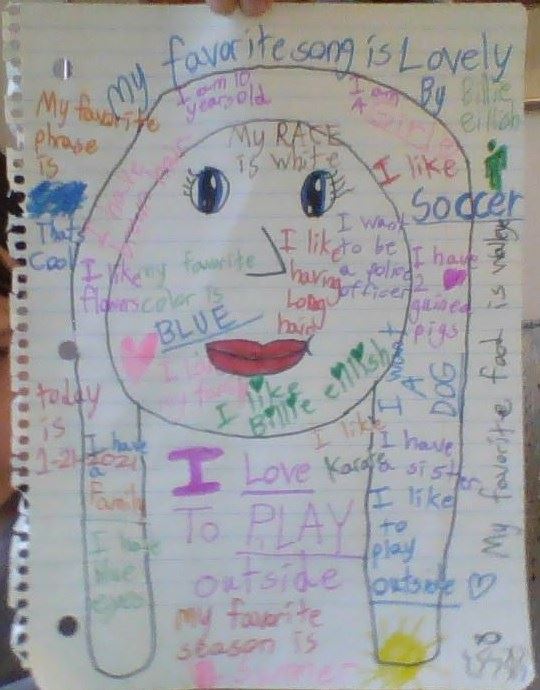 My favorite song is Lovely
By Billie
eilish
I am 10
years old
I am
A Girl
My favorite
phrase
is
Thats
Cool
My RACE
is white
I like
Soccer
I have
I like
flowers
my favorite
color is
BLUE
I like
having
Long
hair
I want
to be
a police
officer
I have
2
guinea
pigs
My favorite food is
I want
A
DOG
I Love
my family
I like
Billie eilish
I like
Karate
today
is
1-21-2021
I have
a
Family
I have
blue
eyes
I Love
To PLAY
outside
I have
a sister
I like
to
play
outside
My favorite
season is
Summer